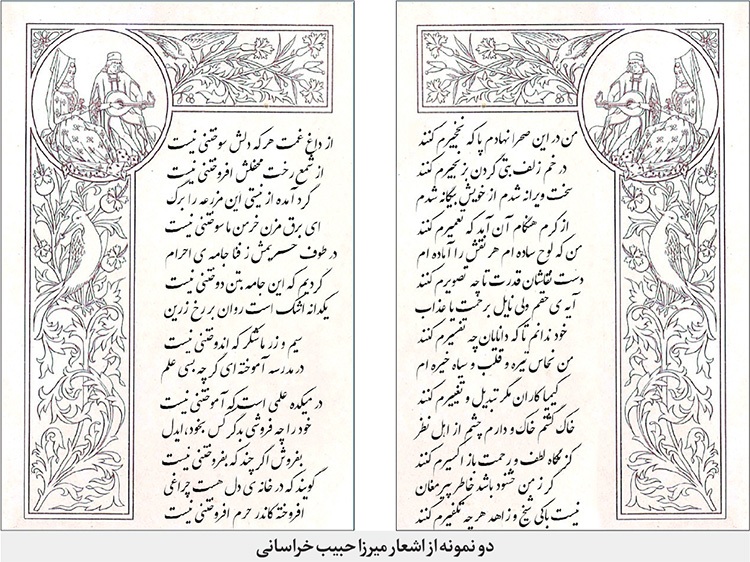 من در این صحرا نهادم پا که نخجیرم کنند
در خم زلف بتی گردن بزنجیرم کنند
سخت ویرانه شدم از خویش بیگانه شدم
از کرم هنگام آن آمد که تعمیرم کنند
من که لوح ساده ام هر نقش را آماده ام
دست نقاشان قدرت تا چه تصویرم کنند
آیه ی حقم ولی نازل برحمت یا عذاب
خود ندانم تا که دانایان چه تفسیرم کنند
من نحاس تیره و قلب و سیاه خیره ام
کیمیا کاران مگر تبدیل و تغییرم کنند
خاک گشتم خاک و دارم چشم از اهل نظر
کز نگاه لطف و رحمت باز اکسیرم کنند
گر ز من خشنود باشد خاطر پیر مغان
نیست باکی شیخ و زاهد هر چه تکفیرم کنند
از داغ غمت هر که دلش سوختنی نیست
از شمع رخت محفلش افروختنی نیست
گرد آمده از نیستی این مزرعه را برگ
ای برق مزن خرمن ما سوختنی نیست
در طوف حریمش ز فنا جامه ی احرام
کردیم که این جامه بتن دوختنی نیست
یکدانه اشک است روان بر رخ زرین
سیم و زر ما شکر که اندوختنی نیست
در مدرسه آموخته ای گر چه بسی علم
در میکده علمی است که آموختنی نیست
خود را چه فروشی بدگر کس بخود، ایدل
بفروش اگر چند که بفروختنی نیست
گویند که در خانه ی دل هست چراغی
افروخته کاندر حرم افروختنی نیست
دو نمونه از اشعار میرزا حبیب خراسانی